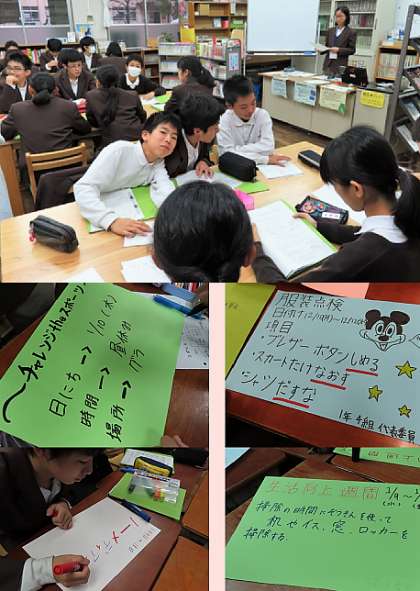 〜チャレンジtheスポーツ
日にち → 1/10 (水)
時間 → 昼休み
場所 → グラ
服装点検
日付け12/11(月)〜12/12(火)
項目
・ブレザーボタンしめる
・スカートたけなおす
・シャツだすな
1年4組 代表委員
ノーメディア
生活向上週間
掃除の時間にぞうきんを使って
机やイス、窓、ロッカーを
掃除する。